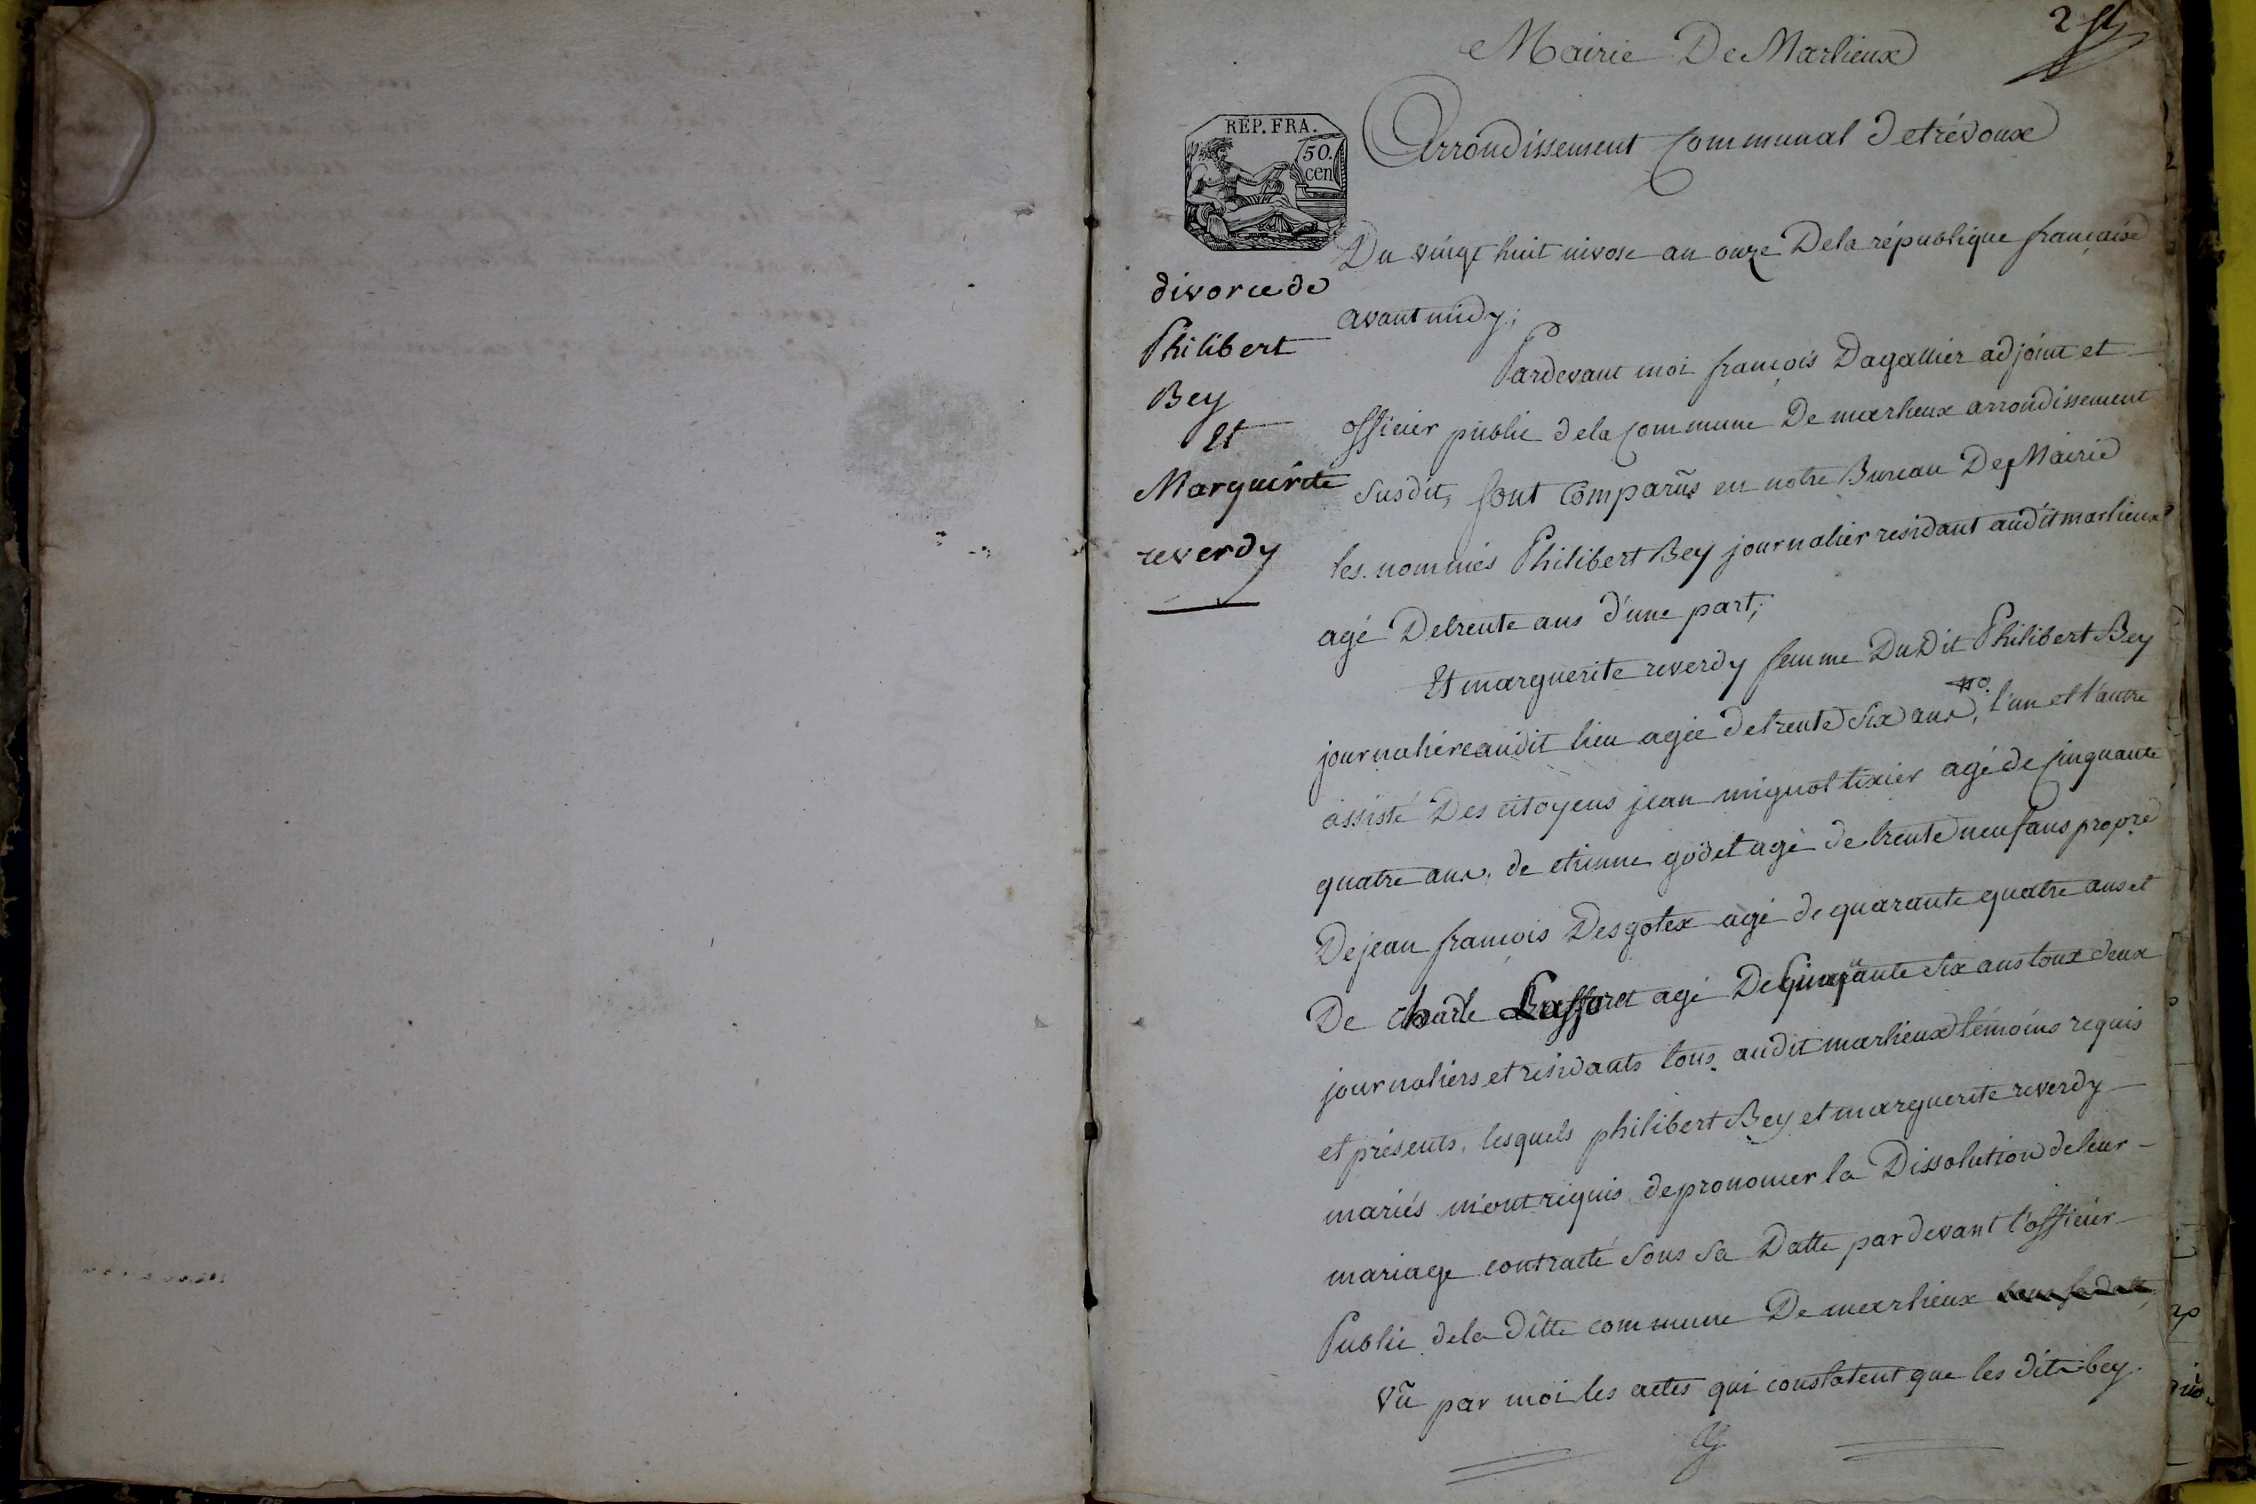 2
Mairie De Marlieux
Arrondissement Communal de trévoux
REP. FRA.
50.
cen
Du vingt huit nivose an onze Dela république française
avant midy;
divorce de
Philibert
Bey
Et
Marguerite
reverdy
Pardevant moi françois Dagallier adjoint et
officier public dela Commune De marlieux arrondissement
susdit, sont Comparûs en notre Bureau De Mairie
les nommés Philibert Bey journalier residant audit marlieux
agé De trente ans d'une part;
Et marguerite reverdy femme Dudit Philibert Bey
journaliére audit lieu agée de trente six ans, l'un et l'autre
assisté Des citoyens jean mignot tixier agé de cinquante
quatre ans, de etienne godet agé de trente neuf ans propre
De jean françois Desgotex agé de quarante quatre ans et
De charle Lafforet agé De Cinquante six ans toux deux
journaliers et residants tous audit marlieux témoins requis
et présents, lesquels philibert Bey et marguerite reverdy
mariés m'ont requis de prononcer la Dissolution de leur
mariage contracté sous sa Datte pardevant l'officier
Public dela ditte commune De marlieux sous sa datte,
Vû par moi les actes qui constatent que les dits bey